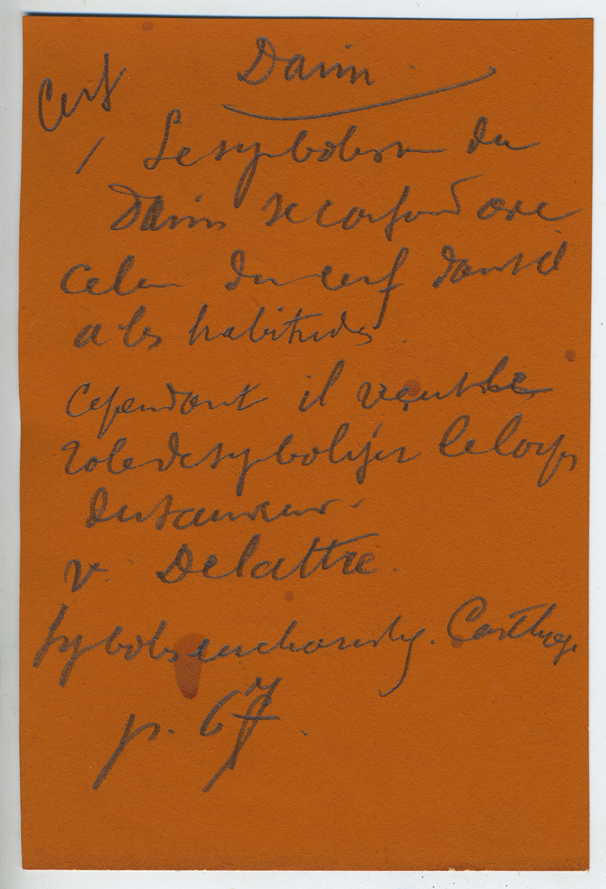 Daim
Cerf
/ Le symbolisme du
Daim se confond avec
celui du cerf dont il
a les habitudes
cependant il reçut le
role de symboliser le corps
du sauveur.
v. Delattre.
symboles eucharistiq. Carthage
p. 67.